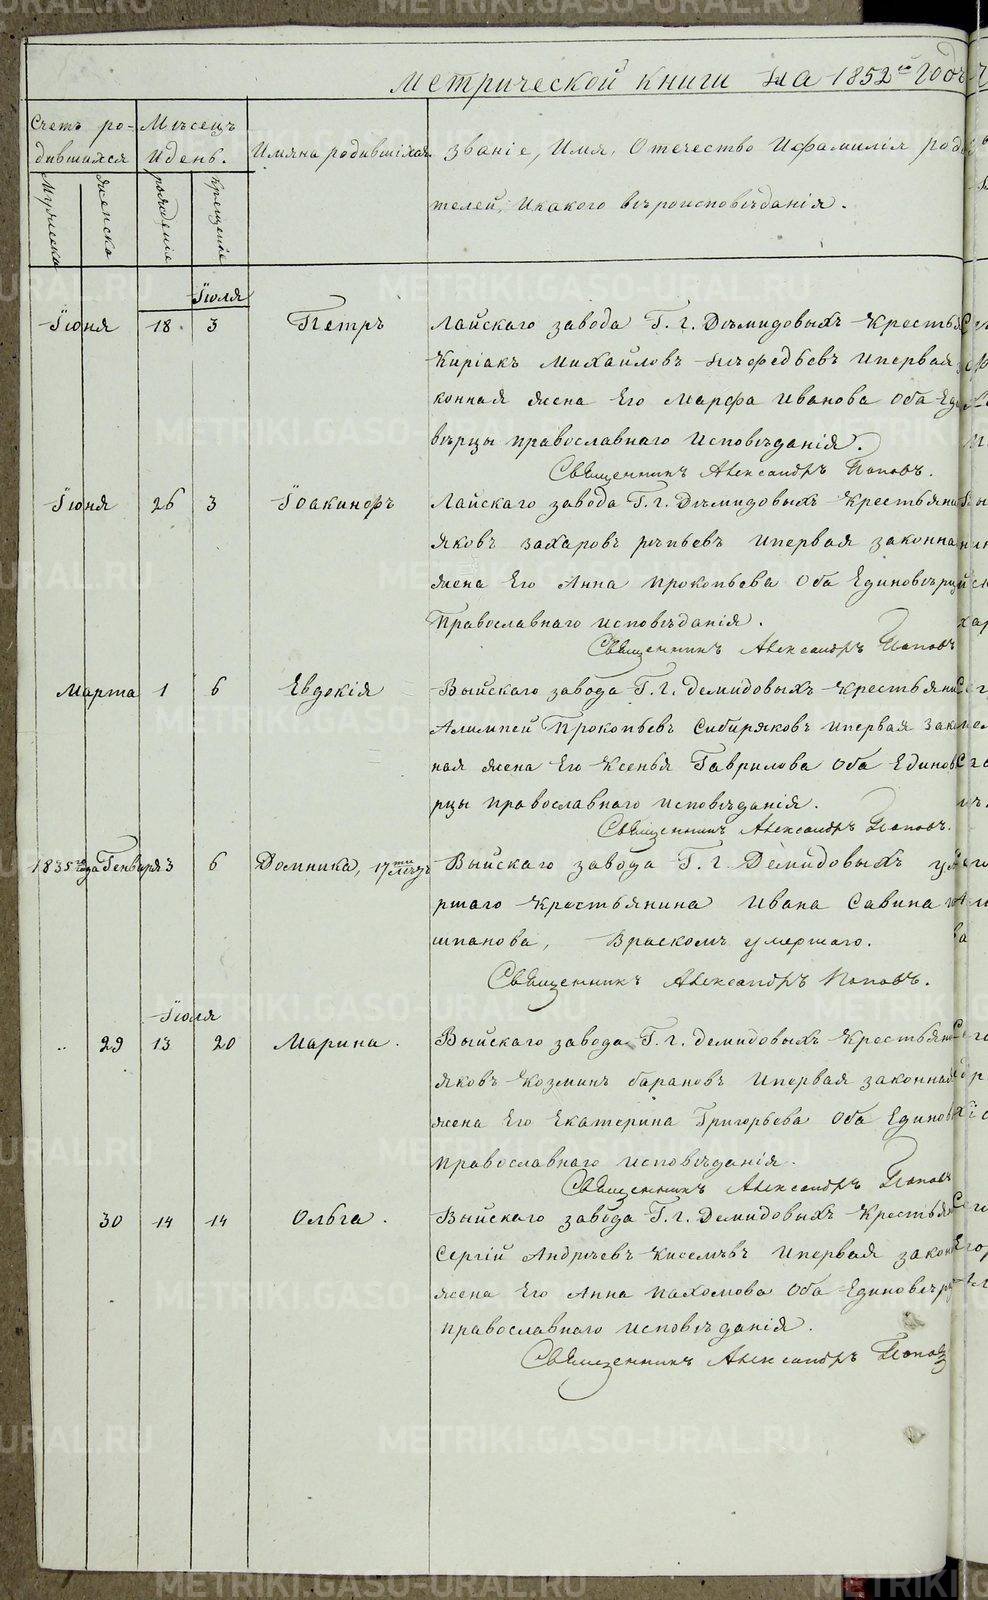 метрической книги на 1852го годъ
Счетъ ро-
дившихся
Мѣсецъ
и день.
Имяна родившихся.
Званіе, Имя, Отечество Ифамилія роди
телей, Икакого вѣроисповѣданія.
Мужеска
женска
рожденіе
крещеніе
Іюля
Іюня 18 3 Петръ Лайскаго завода Г. г. Дѣмидовыхъ Крестья
Киріакъ Михайловъ Ипервая
конная жена Его Марфа Иванова Оба Еди
вѣрцы православнаго Исповѣданія.
Священникъ Александръ Поповъ.
Іюня 26 3 Іоакинфъ Лайскаго завода Г. г. Дѣмидовыхъ Крестьяни
яковъ Захаровъ рѣпьевъ Ипервая законна
жена Его Анна Прокопьева Оба Единовѣрцы
Православнаго исповѣданія.
Священникъ Александръ Поповъ
Марта 1 6 Евдокія Выйскаго завода Г. г. Демидовыхъ Крестьяни
Алимпей Прокопьевъ Сибиряковъ Ипервая Зако
ная жена Его Ксенья Гаврилова Оба Единов
рцы православнаго исповѣданія.
Священникъ Александръ Поповъ.
1835го года Генваря 3 6 Домника, 17ти лѣтъ Выйскаго завода Г. г. Демидовыхъ ум
ршаго Крестьянина Ивана Савина
шпанова, Враскомъ умершаго.
Священникъ Александръ Поповъ.
Іюля
29 13 20 Марина. Выйскаго завода Г. г. Демидовыхъ Крестьяни
яковъ Козминъ барановъ Ипервая законная
жена Его Екатерина Григорьева Оба Единов
православнаго исповѣданія.
Священникъ Александръ Поповъ
30 14 14 Ольга. Выйскаго завода Г. г. Демидовыхъ Крестьян
Сергій Андрѣевъ Киселѣвъ Ипервая закон
жена Его Анна Пахомова Оба Единовѣрц
православнаго исповѣданія.
Священникъ Александръ Поповъ
METRIKI.GASO-URAL.RU